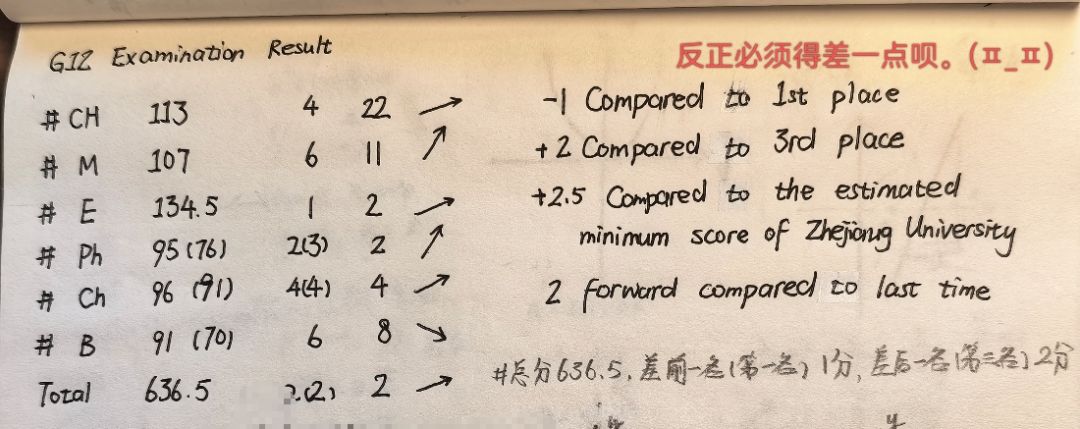 G12 Examination Result
反正必须得差一点呗。(ㅍ_ㅍ)
# CH 113 4 22 ↗ -1 Compared to 1st place
# M 107 6 11 ↗ +2 Compared to 3rd place
# E 134.5 1 2 ↗ +2.5 Compared to the estimated
minimum score of Zhejiang University
# Ph 95(76) 2(3) 2 ↗
# Ch 96 (91) 4(4) 4 ↗ 2 forward compared to last time
# B 91 (70) 6 8 ↘
Total 636.5 2(2) 2 ↗
#总分636.5,差前一名(第一名)1分,差后一名(第三名)2分